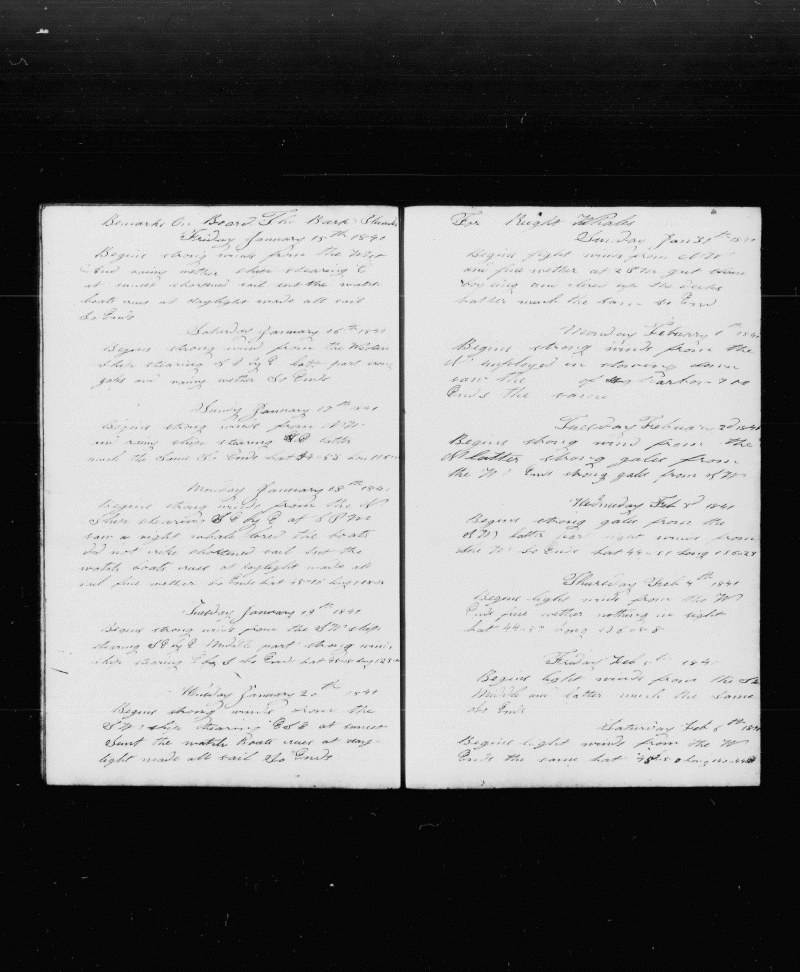 Remarks On Board The Bark
Friday January 15th 1841
Begins strong winds from the West
and rainy wether ship stearing E
at sunset shortened sail sut the watch
boats crues at daylight made all sail
So Ends
Saturday January 16th 1841
Begins strong wind from the Western
Ship stearing S E by E latter part
gales and rainy wether So Ends
Sunday January 17th 1841
Begins strong winds from N W
and rainy ship stearing S E latter
much the same So Ends lat
Monday January 18th 1841
Begins strong winds from the N
Ship stearing S E by E at 6 P M
saw a right whale lored the boats
did not strike shortened sail sut the
watch boats crues at daylight made all
sail fine wether So Ends lat
Tuesday January 19th 1841
Begins strong winds from the S W ship
stearing S E by E Middle part strong winds
ship stearing E by S So Ends lat
Wensday January 20th 1841
Begins strong winds from the
S W ship stearing E S E at sunset
Sunt the watch Boats crues at day
light made all sail So Ends
For Right Whales
Sunday Jan 31th 1841
Begins light winds from N W
and fine wether at 2 P M got
boyling and clired up the decks
latter much the same so End
Monday Feburry 1th 1841
Begins strong winds from the
N employed in stowing down
saw the of
Ends the same
Tuesday Februar 2d 1841
Begins strong wind from the
N latter strong gales from
the W Ends strong gales from N W
Wednesday Feb 3d 1841
Begins strong gales from the
S W latter part light winds from
the W So Ends lat 44-51 Long 136-23
Thursday Feb 4th 1841
Begins light winds from the W
Ends fine wether nothing in sight
lat 44 long
Friday Feb 5th 184
Begins light winds from the
Middle and latter much the same
So Ends
Saturday Feb 6th 184
Begins light winds from the W
Ends the same lat